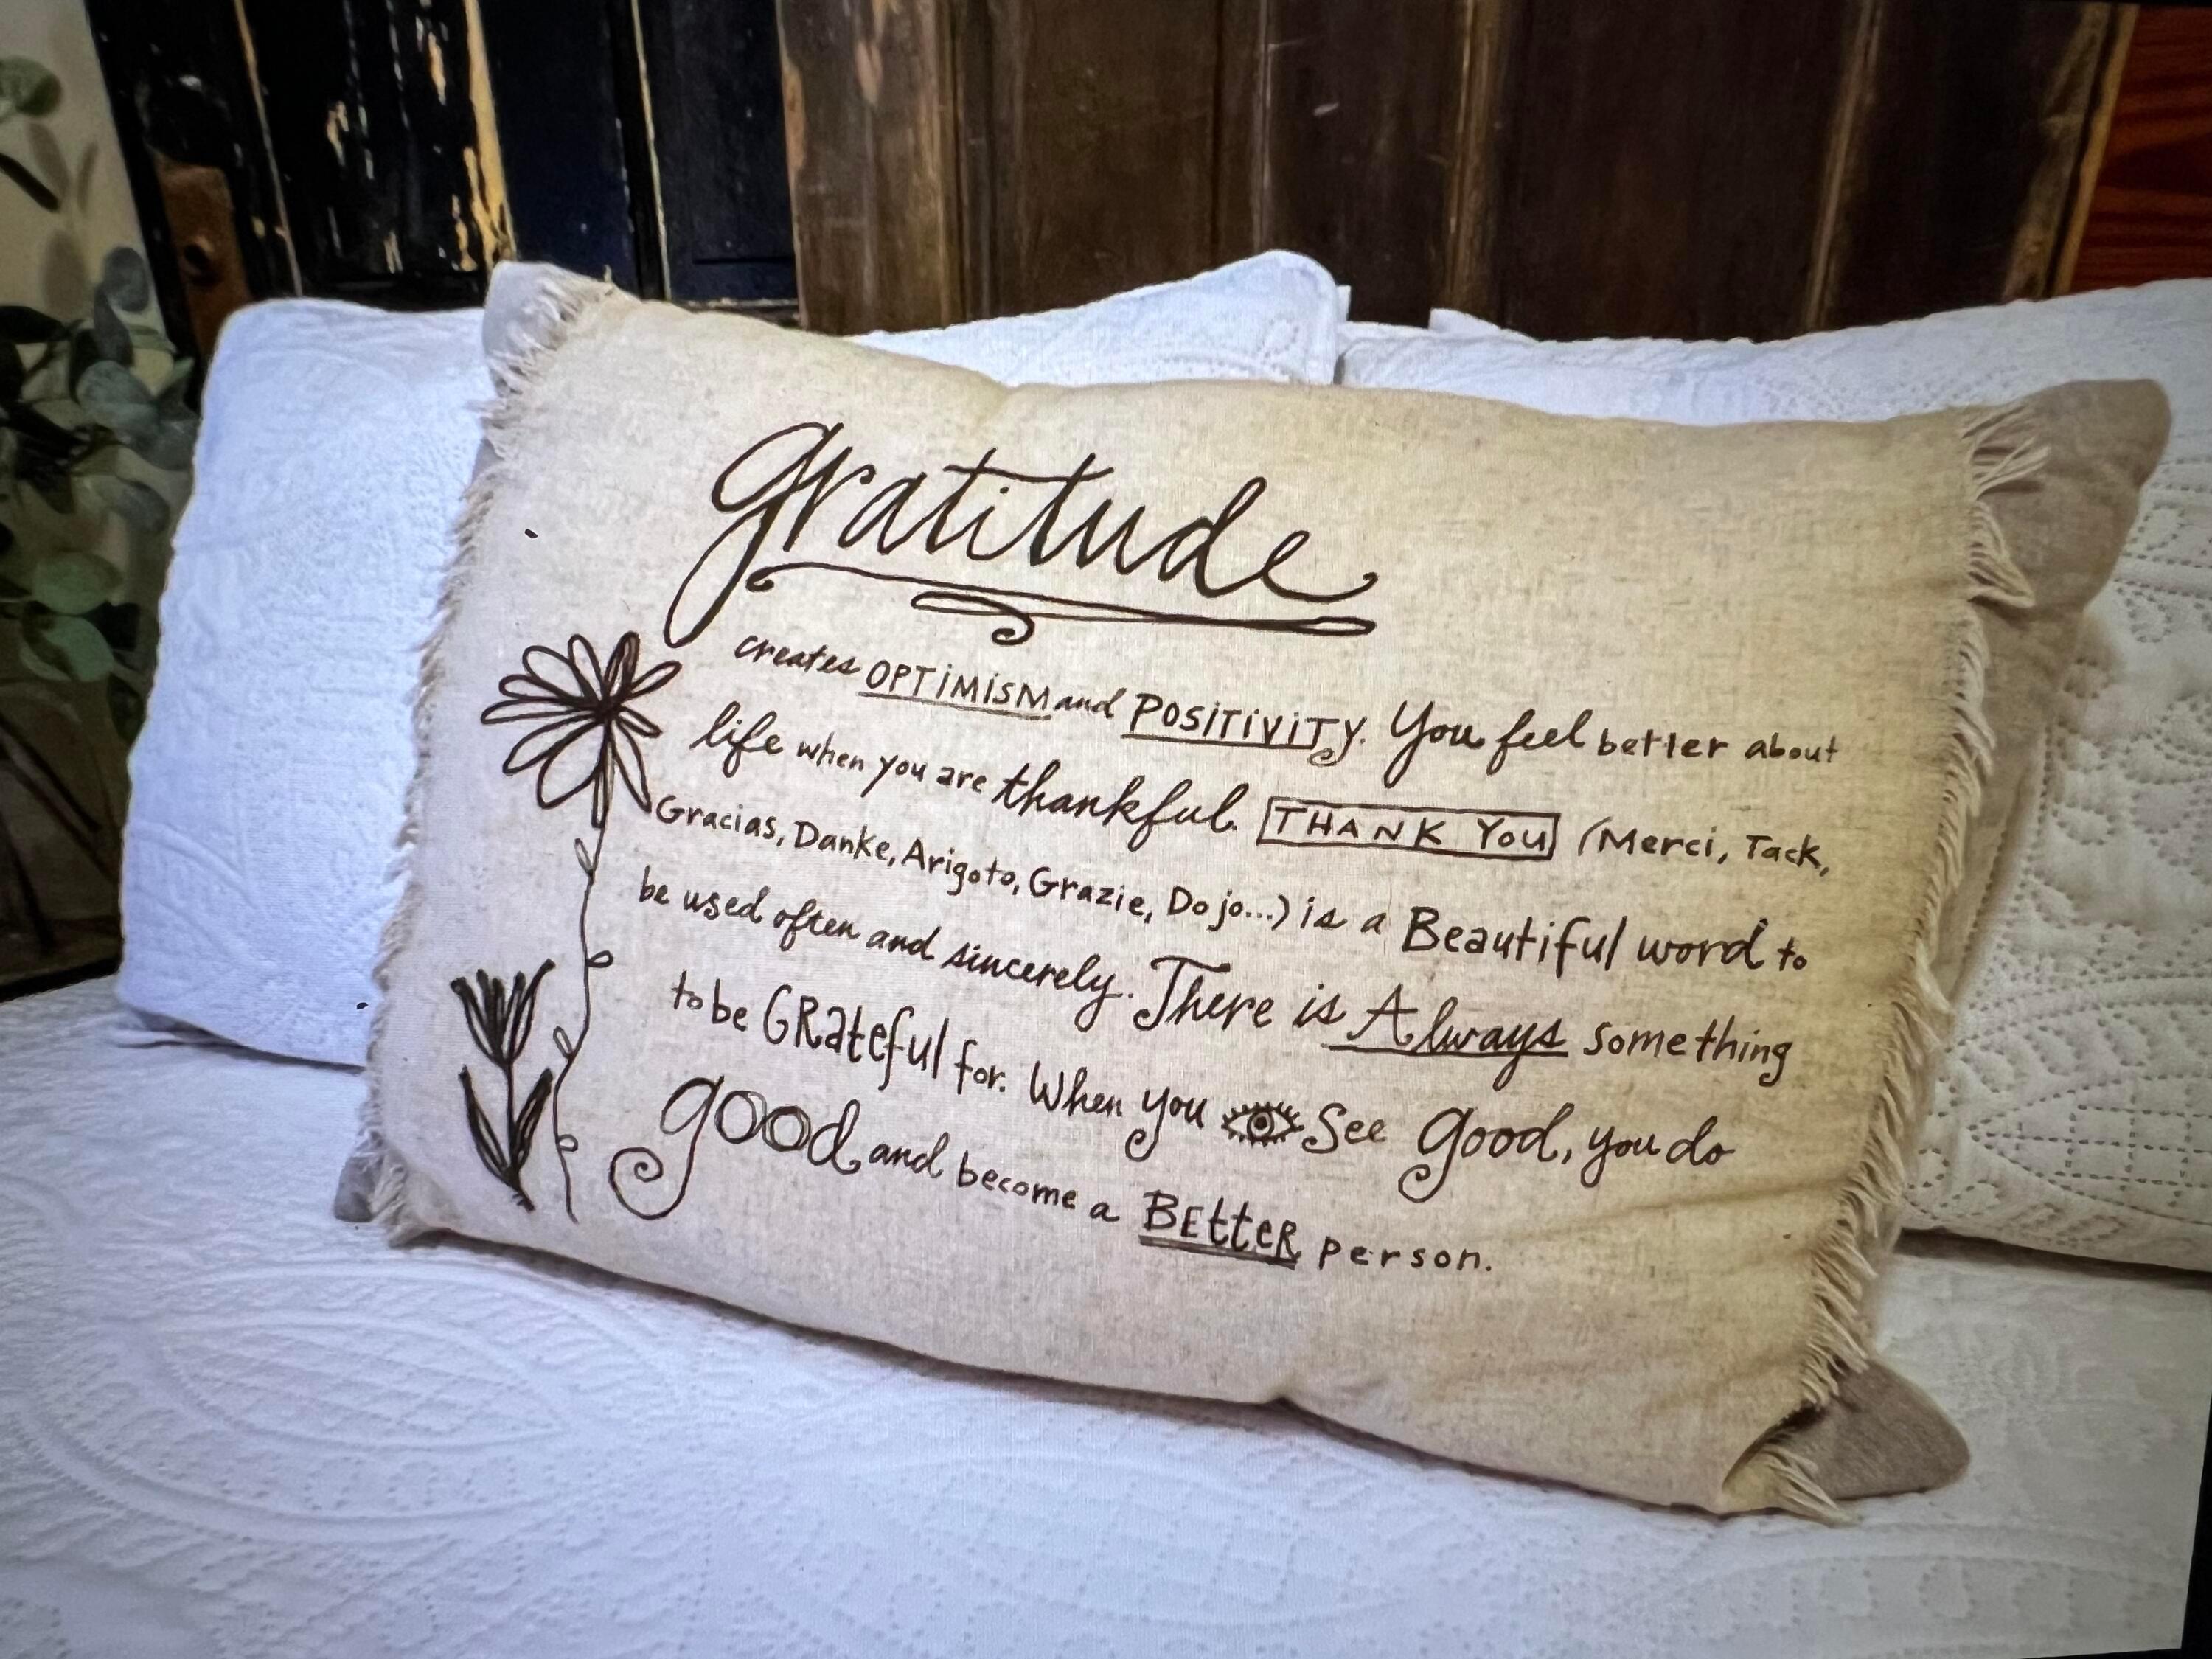 gratitude
creates OPTIMISM and POSITIVITY. You feel better about
life when you are thankful. THANK YOU (Merci, Tack,
Gracias, Danke, Arigoto, Grazie, Dojo...) is a Beautiful word to
be used often and sincerely. There is Always something
to be GRateful for. When you See good, you do
good and become a BEtteR person.